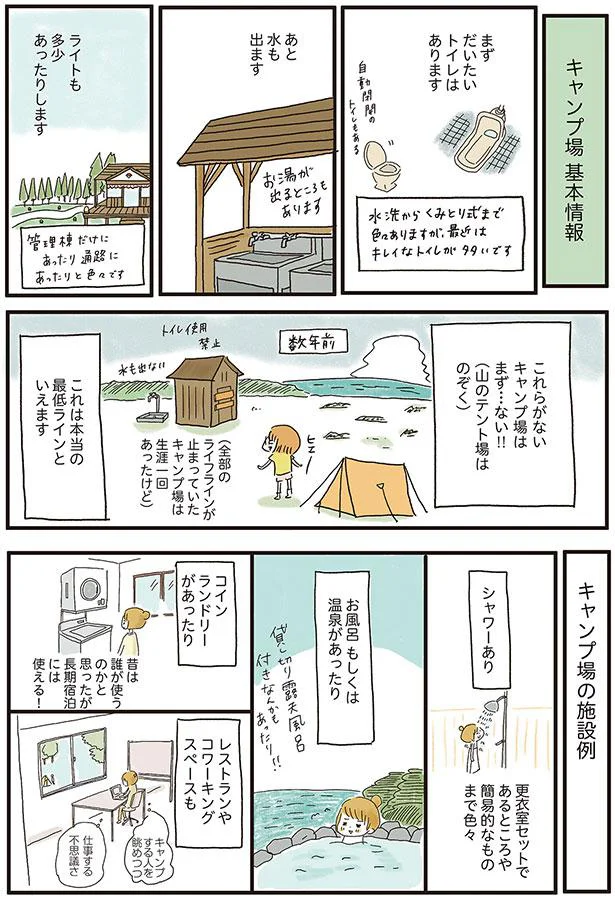 キャンプ場 基本情報
まず
だいたい
トイレは
あります
自動開閉の
トイレもある
水洗からくみとり式まで
色々ありますが、最近は
キレイなトイレが多いです
あと
水も
出ます
お湯が
出るところも
あります
ライトも
多少
あったりします
管理棟だけに
あったり通路に
あったりと色々です
これらがない
キャンプ場は
まず…ない!!
(山のテント場は
のぞく)
数年前
トイレ使用
禁止
水も出ない
ヒェー
(全部の
ライフラインが
止まっていた
キャンプ場は
生涯一回
あったけど)
これは本当の
最低ラインと
いえます
キャンプ場の施設例
シャワーあり
更衣室セットで
あるところや
簡易的なもの
まで色々
お風呂 もしくは
温泉があったり
貸し切り露天風呂
付きなんかも
あったり!!
コイン
ランドリー
があったり
昔は
誰が使う
のかと
思ったが
長期宿泊
には
使える!
レストランや
コワーキング
スペースも
キャンプ
する人を
眺めつつ
仕事する
不思議さ